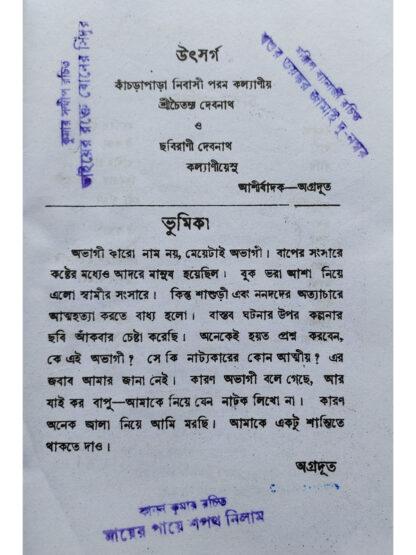 কুমার সন্দীপ রচিত
ভাইয়ের রক্তে বোনের সিঁদুর
রচিত
শ্বশুর ভয়ঙ্কর জামাই দু-নম্বর
উৎসর্গ
কাঁচড়াপাড়া নিবাসী পরম কল্যাণীয়
শ্রীচৈতন্য দেবনাথ
ও
ছবিরাণী দেবনাথ
কল্যাণীয়েষু
আশীর্বাদক—অগ্রদূত
ভূমিকা
অভাগী কারো নাম নয়, মেয়েটাই অভাগী। বাপের সংসারে
কষ্টের মধ্যেও আদরে মানুষ হয়েছিল। বুক ভরা আশা নিয়ে
এলো স্বামীর সংসারে। কিন্তু শাশুড়ী এবং ননদদের অত্যাচারে
আত্মহত্যা করতে বাধ্য হলো। বাস্তব ঘটনার উপর কল্পনার
ছবি আঁকবার চেষ্টা করেছি। অনেকেই হয়ত প্রশ্ন করবেন,
কে এই অভাগী? সে কি নাট্যকারের কোন আত্মীয়? এর
জবাব আমার জানা নেই। কারণ অভাগী বলে গেছে, আর
যাই কর বাপু—আমাকে নিয়ে যেন নাটক লিখো না। কারণ
অনেক জ্বালা নিয়ে আমি মরছি। আমাকে একটু শান্তিতে
থাকতে দাও।
অগ্রদূত
কুমার রচিত
মায়ের পায়ে শপথ নিলাম